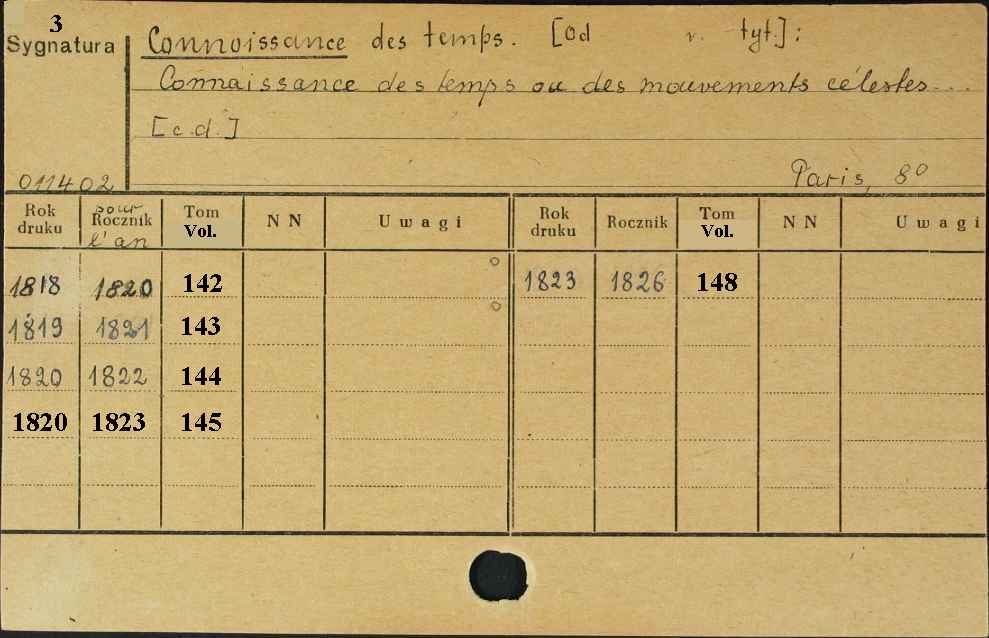 3
Sygnatura
Connoissance des temps. [Od r. tyt.]:
Connaissance des temps ou des mouvements célestes...
[c.d.]
011402
Paris, 8º
Rok druku pour Rocznik l'an Tom Vol. NN Uwagi Rok druku Rocznik Tom Vol. NN Uwagi
1818 1820 142 1823 1826 148
1819 1821 143
1820 1822 144
1820 1823 145